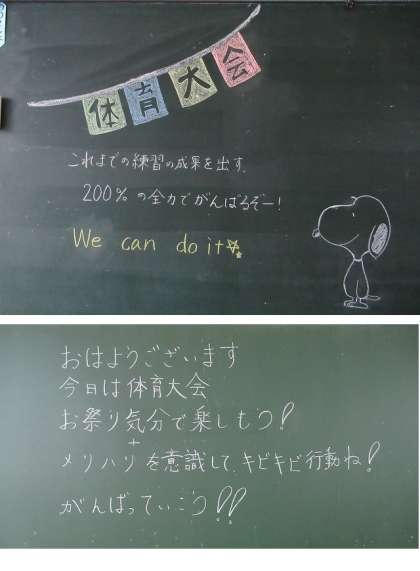 体育大会
これまでの練習の成果を出す.
200%の全力でがんばるぞー!
We can do it☆
おはようございます
今日は体育大会
お祭り気分で楽しもう!
+
メリハリを意識して、キビキビ行動ね!
がんばっていこう!!